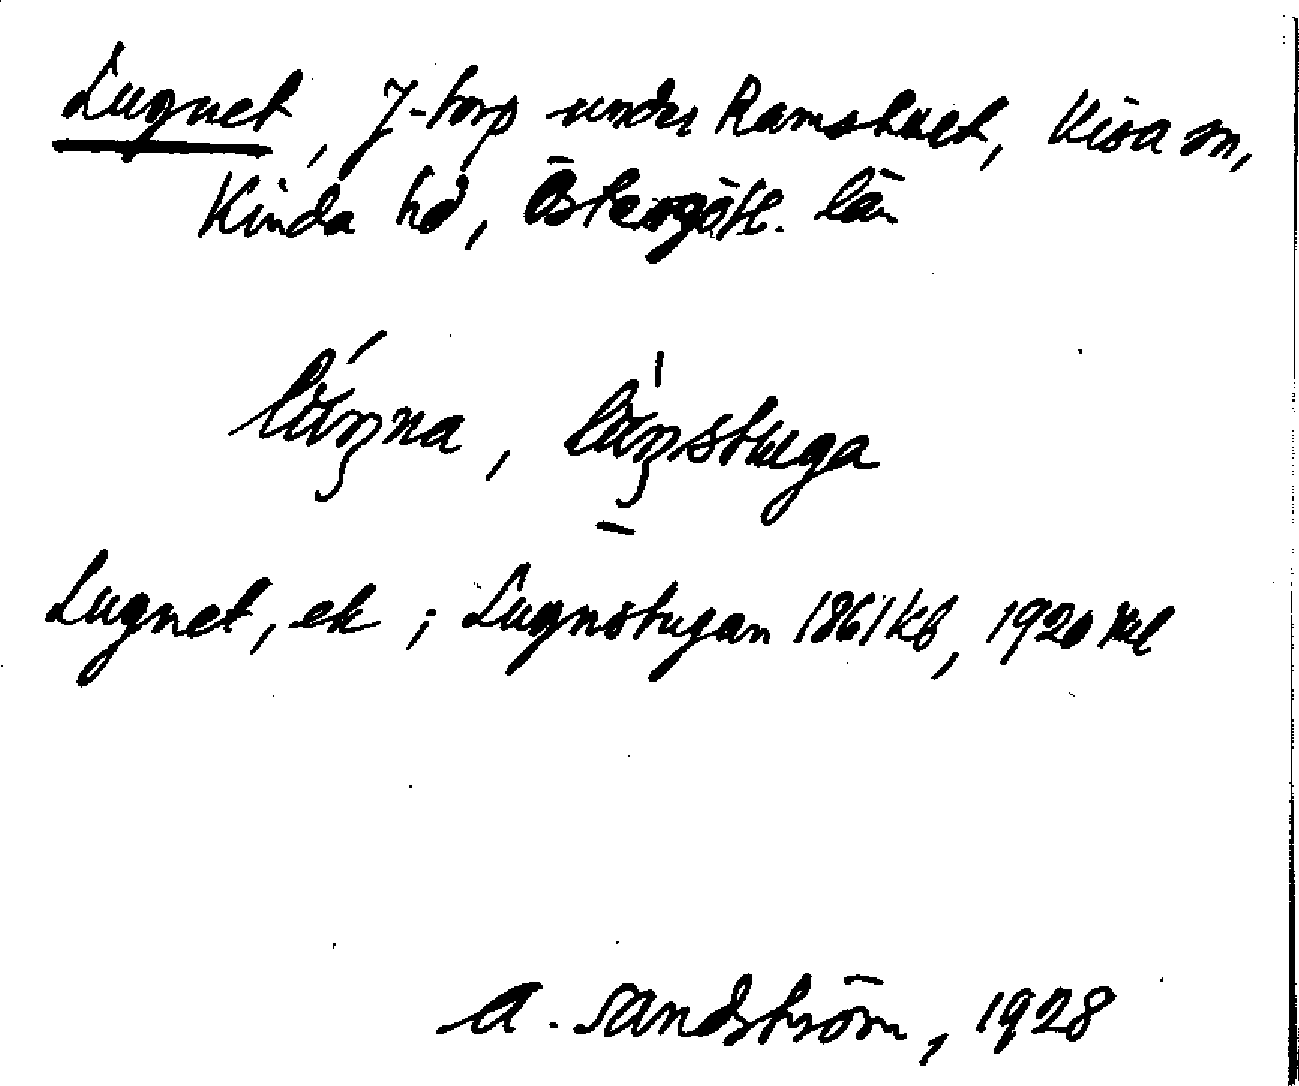 Lugnet, J-torp under Ramshult, Kisa sn,
Kinda hd, Östergötl. län
Lugnet, ek; Lugnstugan 1861 kb, 1920
A. Sandström, 1928